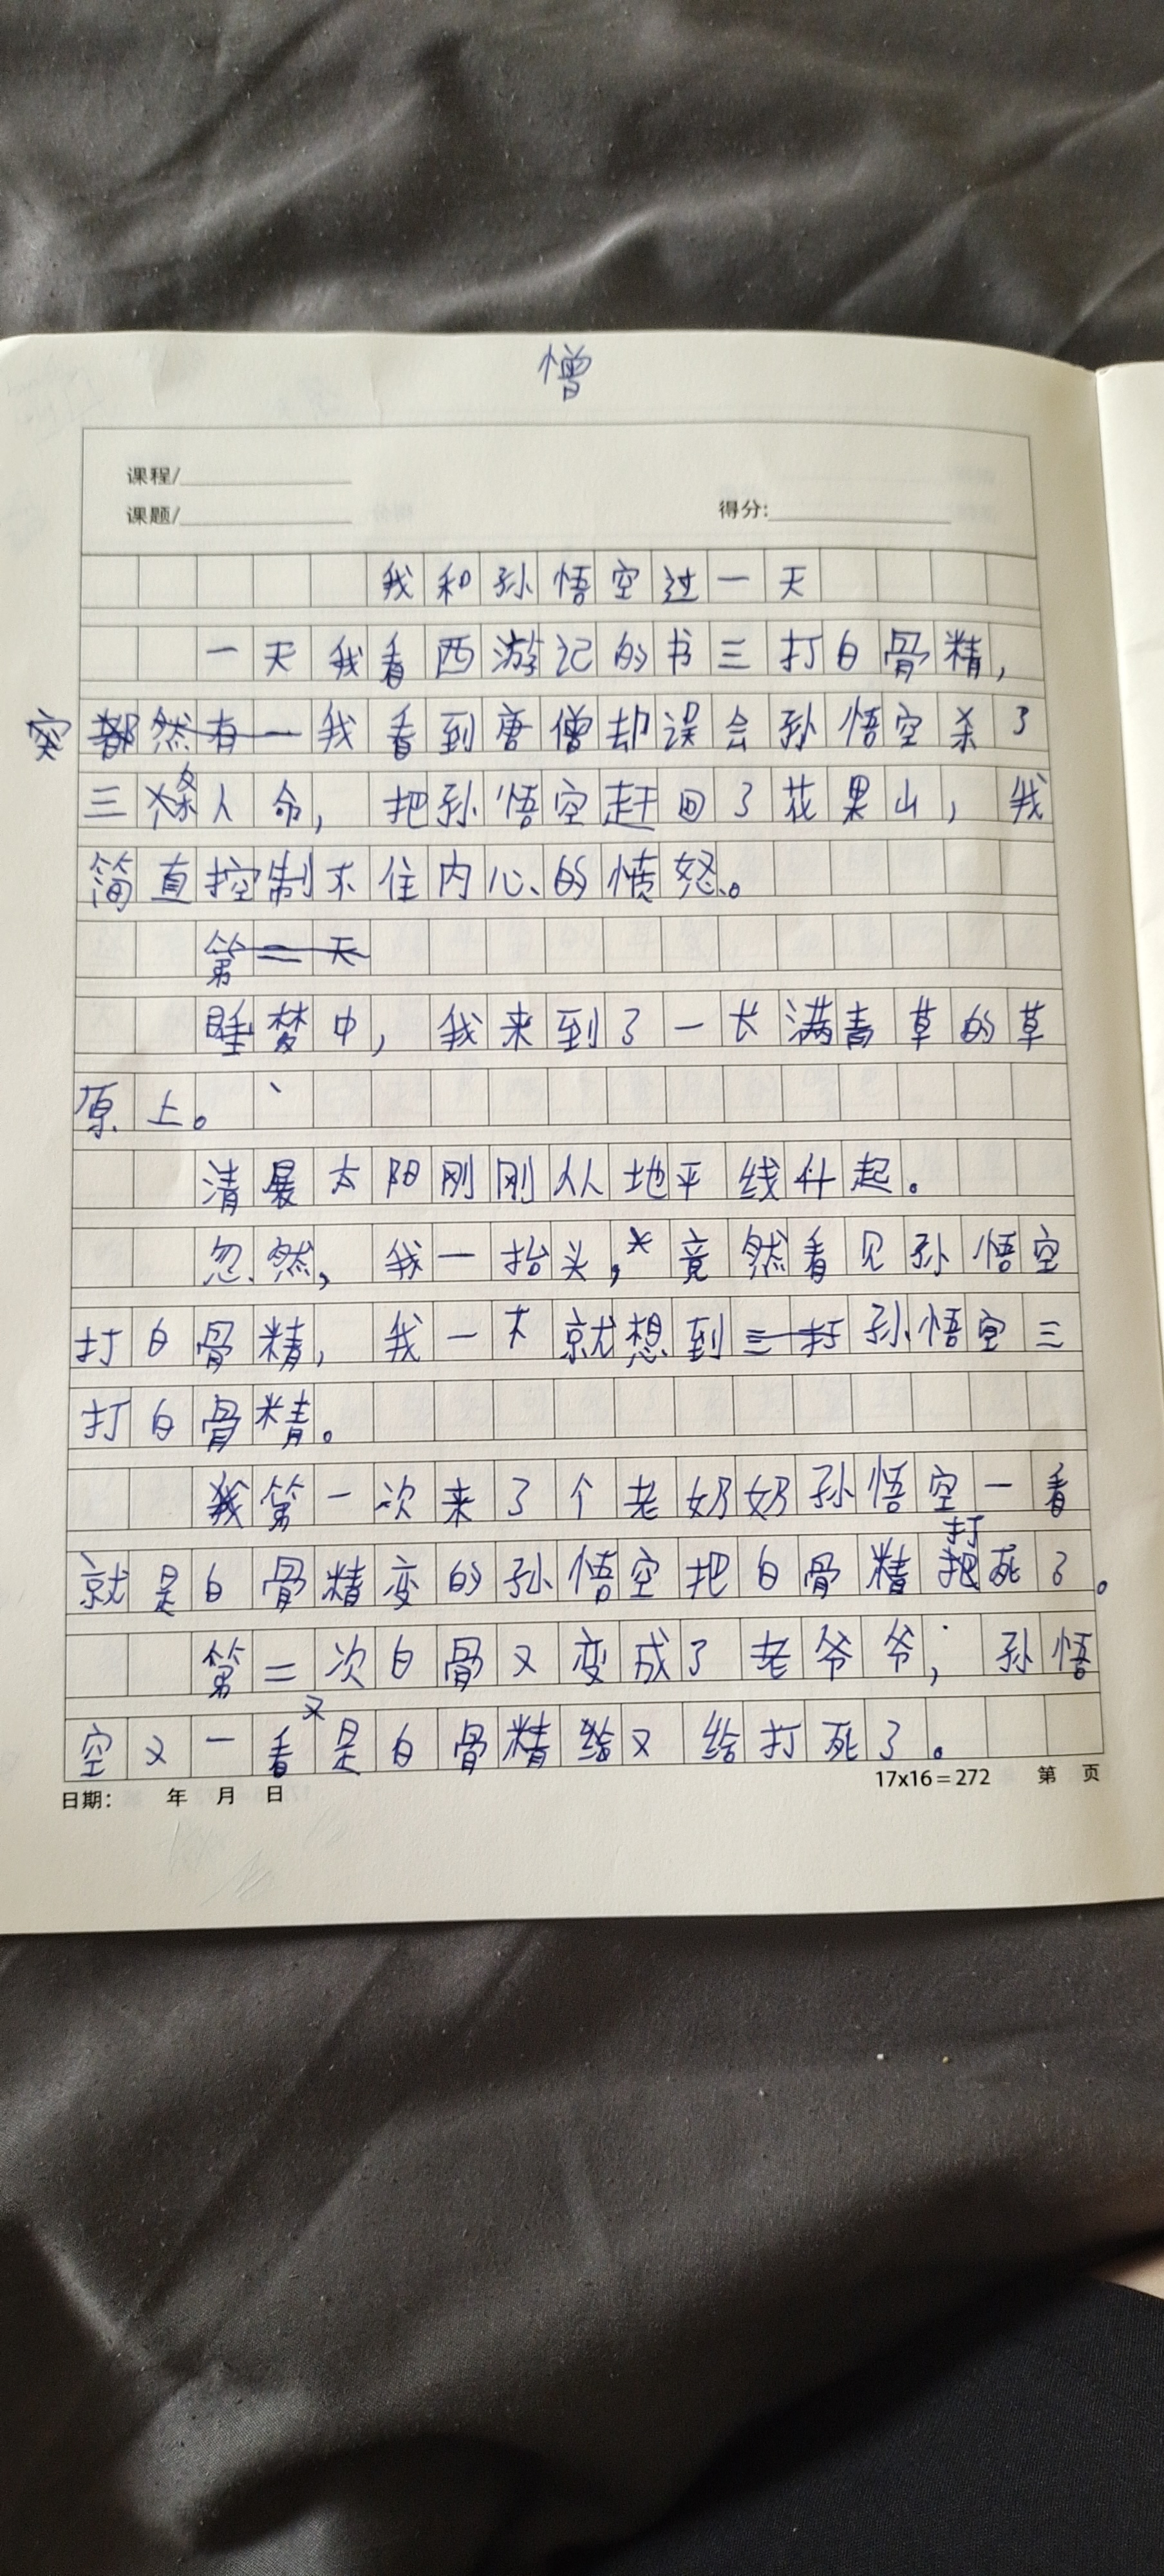 憎
课程/
课题/
得分:
我和孙悟空过一天
一天我看西游记的书三打白骨精,
突然有一我看到唐僧却误会孙悟空杀了
三条人命, 把孙悟空赶回了花果山, 我
简直控制不住内心的愤怒。
第二天
睡梦中, 我来到了一长满青草的草
原上。
清晨太阳刚刚从地平线升起。
忽然, 我一抬头, 竟然看见孙悟空
打白骨精, 我一下就想到三打孙悟空三
打白骨精。
我第一次来了个老奶奶孙悟空一看
就是白骨精变的孙悟空把白骨精打死了。
第二次白骨又变成了老爷爷; 孙悟
空又一看又是白骨精给又给打死了。
日期: 年 月 日
17x16=272 第 页